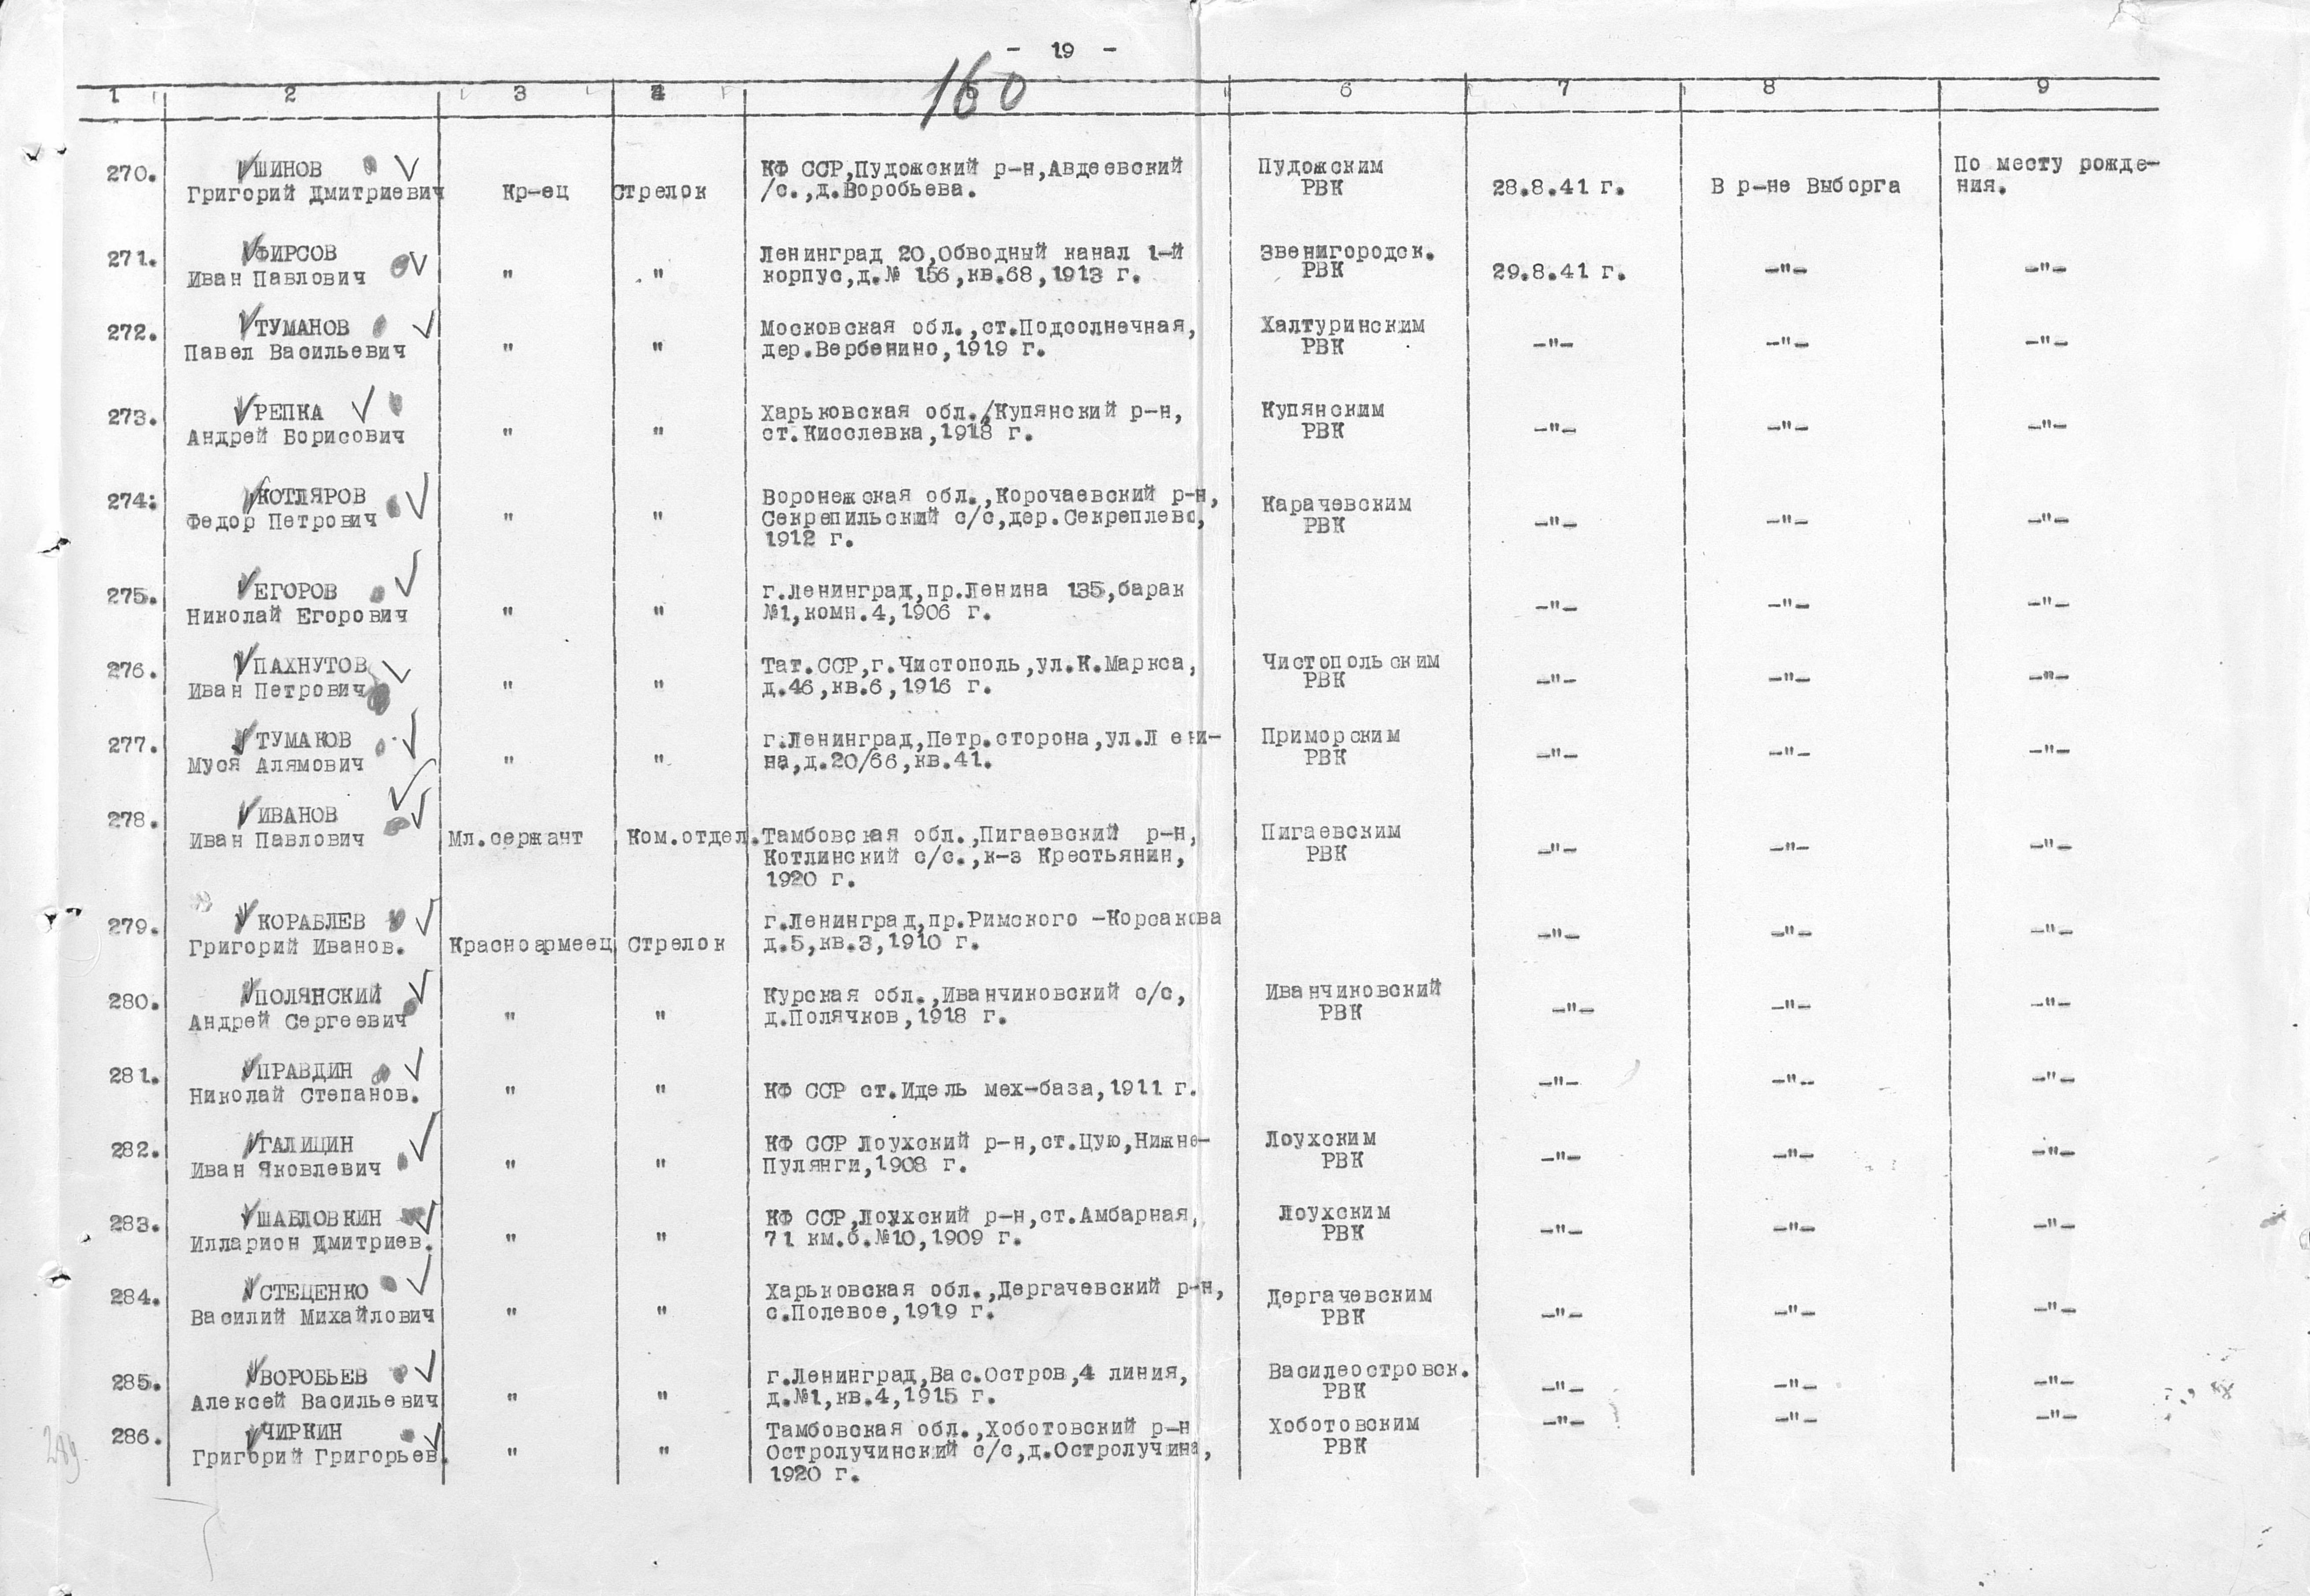 - 19 -
160
1 2 3 4 5 6 7 8 9
270. ШИНОВ Григорий Дмитриевич Кр-ец Стрелок КФ ССР,Пудожский р-н,Авдеевский Пудожским РВК 28.8.41 г. В р-не Выборга По месту рожде-
/с.,д.Воробьева. ния.
271. ФИРСОВ Ленинград 20,Обводный канал 1-й Звенигородск.
Иван Павлович " " корпус,д.№ 156,кв.68,1913 г. РВК 29.8.41 г. -"- -"-
272. ТУМАНОВ Московская обл.,ст.Подсолнечная, Халтуринским
Павел Васильевич " " дер.Вербенино,1919 г. РВК -"- -"- -"-
273. РЕПКА Харьковская обл./Купянский р-н, Купянским
Андрей Борисович " " ст.Кисслевка,1918 г. РВК -"- -"- -"-
274. КОТЛЯРОВ Воронежская обл.,Корочаевский р-н, Карачевским
Федор Петрович " " Секрепильский с/с,дер.Секреплево, РВК -"- -"- -"-
1912 г.
275. ЕГОРОВ г.Ленинград,пр.Ленина 135,барак
Николай Егорович " " №1,комн.4,1906 г. -"- -"- -"-
276. ПАХНУТОВ Тат.ССР,г.Чистополь,ул.К.Маркса, Чистопольским
Иван Петрович " " д.46,кв.6,1916 г. РВК -"- -"- -"-
277. ТУМАКОВ г.Ленинград,Петр.сторона,ул.Лени- Приморским
Муся Алямович " " на,д.20/66,кв.41. РВК -"- -"- -"-
278. ИВАНОВ
Иван Павлович Мл.сержант Ком.отдел. Тамбовская обл.,Пигаевский р-н, Пигаевским
Котлинский с/с.,к-з Крестьянин, РВК -"- -"- -"-
1920 г.
279. КОРАБЛЕВ г.Ленинград,пр.Римского -Корсакова
Григорий Иванов. Красноармеец Стрелок д.5,кв.3,1910 г. -"- -"- -"-
280. ПОЛЯНСКИЙ Курская обл.,Иванчиковский с/с, Иванчиковский
Андрей Сергеевич " " д.Полячков,1918 г. РВК -"- -"- -"-
281. ПРАВДИН
Николай Степанов. " " КФ ССР ст.Идель мех-база,1911 г. -"- -"- -"-
282. ГАЛИЦИН КФ ССР Лоухский р-н,ст.Цую,Нижне- Лоухским
Иван Яковлевич " " Пулянги,1908 г. РВК -"- -"- -"-
283. ШАБЛОВКИН КФ ССР,Лоухский р-н,ст.Амбарная, Лоухским
Илларион Дмитриев. " " 71 км.б.№10,1909 г. РВК -"- -"- -"-
284. СТЕЦЕНКО Харьковская обл.,Дергачевский р-н, Дергачевским
Василий Михайлович " " с.Полевое,1919 г. РВК -"- -"- -"-
285. ВОРОБЬЕВ г.Ленинград,Вас.Остров,4 линия, Василеостровск.
Алексей Васильевич " " д.№1,кв.4,1915 г. РВК -"- -"- -"-
286. ЧИРКИН Тамбовская обл.,Хоботовский р-н Хоботовским -"- -"- -"-
Григорий Григорьев. " " Остролучинский с/с,д.Остролучина, РВК
1920 г.
289.